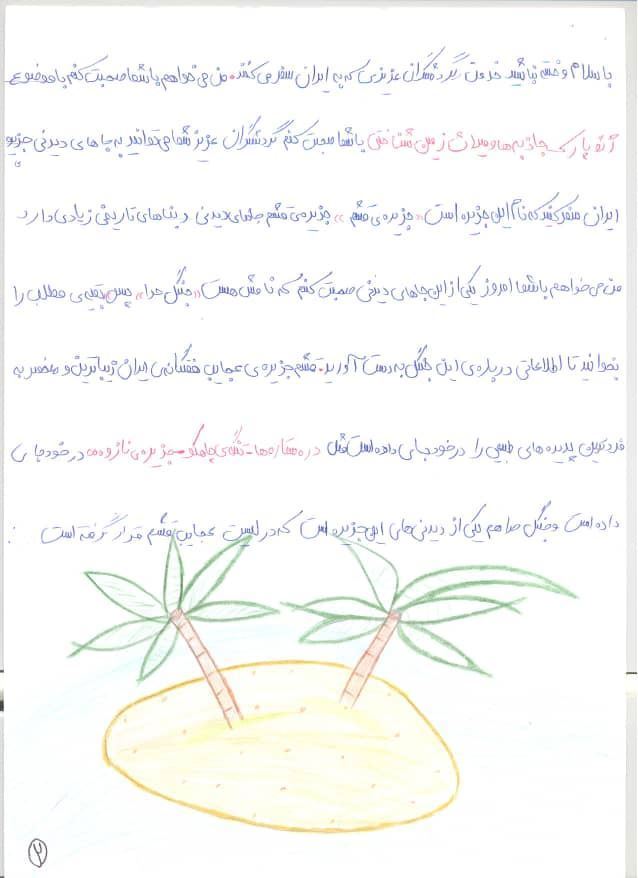 با سلام و خسته نباشید خدمت گردشگران عزیزی که به ایران سفر می‌کنند. من می‌خواهم با شما صحبت کنم با موضوع
ژئو پارک جاذبه‌ها و میراث زمین شناختی با شما صحبت کنم گردشگران عزیز شما می‌توانید به جاهای دیدنی جزیره
ی
ایران سفر کنید که نام این جزیره است «جزیره‌ی قشم» جزیره‌ی قشم جاهای دیدنی و بناهای تاریخی زیادی دارد
من می‌خواهم با شما امروز یکی از این جاهای دیدنی صحبت کنم که نامش هست «جنگل حرا» پس بقیه‌ی مطلب را
بخوانید تا اطلاعاتی درباره‌ی این جنگل به دست آورید. قشم جزیره‌ی عجایب هفتگانه‌ی ایران زیباترین و منحصر به
فردترین پدیده های طبیعی را در خود جای داده است مثل دره ستاره‌ها - تنگه‌ی چاهکو - جزیره‌ی ناز و... در خود جای
داده است و جنگل حرا هم یکی از دیدنی‌های این جزیره است که در لیست عجایب قشم قرار گرفته است :
۲